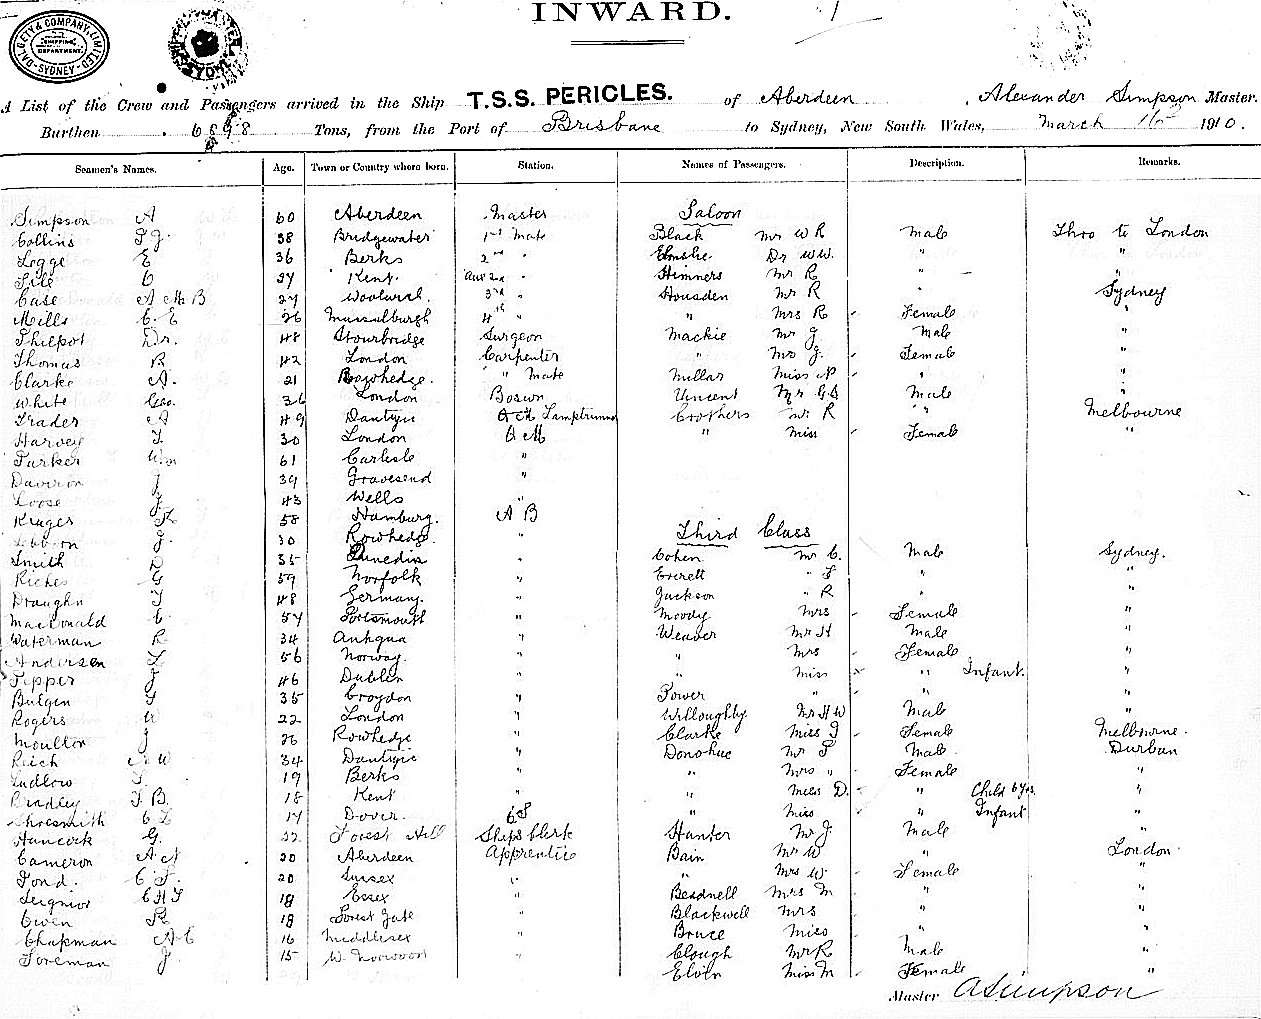 INWARD.
DALGETY & COMPANY, LIMITED
SHIPPING DEPARTMENT.
SYDNEY
A List of the Crew and Passengers arrived in the Ship T.S.S. PERICLES. of Aberdeen, Alexander Simpson Master.
Burthen 6898 Tons, from the Port of Brisbane to Sydney, New South Wales, March 16 1910.
Seamen's Names. Age. Town or Country where born. Station. Names of Passengers. Description. Remarks.
Saloon
Simpson A 60 Aberdeen Master
Collins P J 38 Bridgewater 1st Mate Black Mr W R Male Thro to London
Legge E 36 Berks 2nd " Elmslie Dr W.W. " "
C 27 Kent. Aux 2nd Himners Mr R " "
Case A McB 27 Woolwich. 3rd " Housden Mr R " Sydney
Mills C. E 26 Mussulburgh 4th " " Mrs R Female "
Philpot Dr. 48 Stourbridge Surgeon Mackie Mr J Male "
Thomas R 42 London Carpenter " Mrs J. Female "
Clarke A. 21 Rowhedge. " Mate Millar Miss N " "
White Geo. 36 London Bosun Vincent Mr G S Male "
Trader A 49 Dantzic Lamptrimmer Crothers Mr R " Melbourne
Harvey T 30 London Q M " Miss Female "
Parker Wm 61 Carlisle "
J 39 Gravesend "
Loose J. 43 Wells "
Kruger K 58 Hamburg. A B
J. 30 Rowhedge. "
Third Class
Smith D 35 Dunedin " Cohen Mr C. Male Sydney.
Riches G 59 Norfolk " Everett " S " "
Draughn T 48 Germany. " Jackson " R " "
MacDonald C. 57 Portsmouth " Moody Mrs Female "
Waterman R 34 Antigua " Weaver Mr H Male "
Andersen L 56 Norway. " " Mrs Female "
Pepper J 46 Dublin " " Miss " Infant. "
Bulgen F 35 Croydon " Power " " "
Rogers W 22 London " Willoughby Mr H W Male "
Moulton J 26 Rowhedge " Clarke Miss J Female Melbourne.
Reich W 34 Dantzic " Donohue Mr P Male. Durban
Ludlow S. 19 Berks " " Mrs " Female "
Bradley F. B. 18 Kent " " Miss D. " Child 6 yrs. "
Shoesmith C L 17 Dover. O S " Miss " Infant "
Hancock G. 22 Forest Hill Ships Clerk Hunter Mr J Male "
Cameron A N 20 Aberdeen Apprentice Bain Mr W " London
Pond. C F. 20 Sussex " " Mrs W. Female "
Seignior C H F 18 Essex " Beadnell Mrs M " "
Owen R 18 Forest Gate " Blackwell Mrs " "
Chapman A C 16 Middlesex " Bruce Miss " "
Foreman J. 15 W. Norwood " Clough Mr R Male "
Elvin Miss M Female "
Master A Simpson